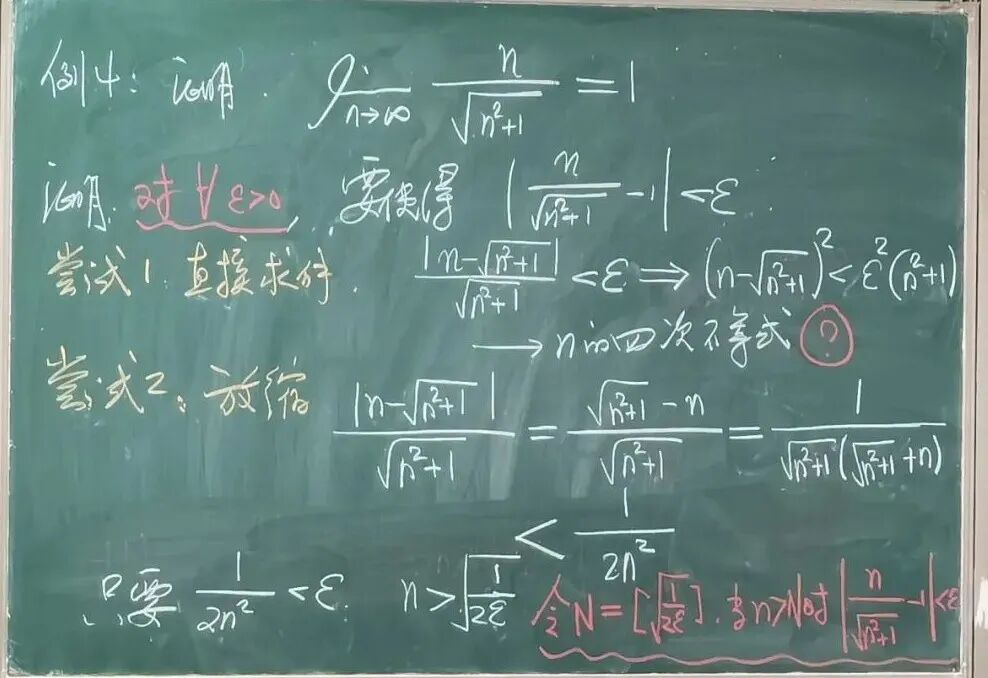 例4: 证明. lim n→∞ n/√(n²+1) = 1
证明. 对∀ε>0, 要使得 |n/√(n²+1) - 1| < ε.
尝试1. 直接求解. |n-√(n²+1)|/√(n²+1) < ε ⟹ (n-√(n²+1))² < ε²(n²+1)
→ n的四次不等式 ?
尝试2: 放缩 |n-√(n²+1)|/√(n²+1) = (√(n²+1)-n)/√(n²+1) = 1/(√(n²+1)(√(n²+1)+n))
< 1/(2n²)
只要 1/(2n²) < ε. n > √(1/(2ε)) 令N=[√(1/(2ε))]. 当n>N时 |n/√(n²+1) - 1| < ε